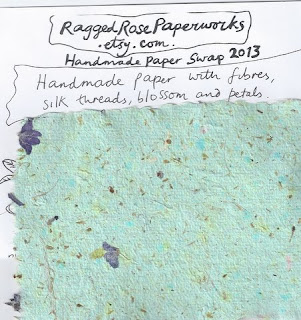 RaggedRosePaperworks
.etsy.com.
Handmade Paper Swap 2013
Handmade paper with fibres,
silk threads, blossom and petals.